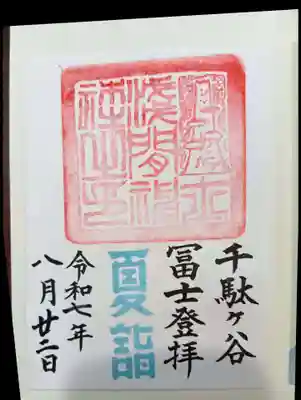 淺間神
社之印
千駄ヶ谷
冨士登拝
夏詣
令和七年
八月廿二日